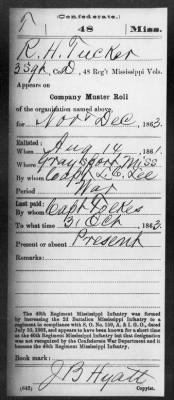 (Confederate.)
T 48 Miss.
R. H. Tucker
3 Sgt, Co. D, 48 Reg't Mississippi Vols.
Appears on
Company Muster Roll
of the organization named above,
for Nov & Dec, 1863.
Enlisted:
When Aug 14, 1861.
Where Grayсport Miss
By whom Capt. L. C. Lee
Period War
Last paid:
By whom Capt Folkes
To what time 31 Oct, 1863.
Present or absent Present
Remarks:
The 48th Regiment Mississippi Infantry was formed
by increasing the 2d Battalion Mississippi Infantry to a
regiment in compliance with S. O. No.
appears to have been known for a short time
as the 49th Regiment Mississippi Infantry but that designation
was not recognized by the Confederate War Department and it
became the 48th Regiment Mississippi Infantry.
Book mark:
J B Hyatt
(642) Copyist.